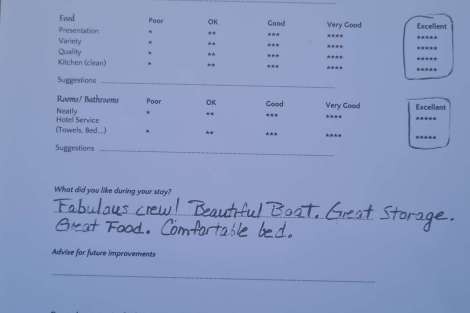 Food Poor OK Good Very Good Excellent
Presentation * ** *** **** *****
Variety * ** *** **** *****
Quality * ** *** **** *****
Kitchen (clean) * ** *** **** *****
Suggestions
Rooms/ Bathrooms Poor OK Good Very Good Excellent
Neatly * ** *** **** *****
Hotel Service
(Towels, Bed...) * ** *** **** *****
Suggestions
What did you like during your stay?
Fabulous crew! Beautiful Boat. Great Storage.
Great Food. Comfortable bed.
Advise for future improvements